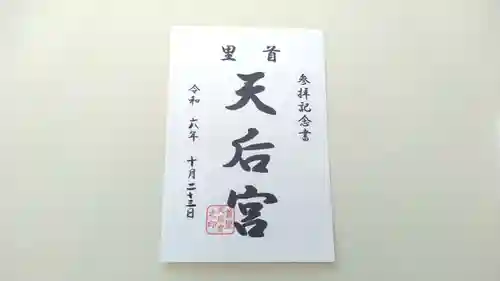 参拝記念書
首里
天后宮
令和 六年 十月二十三日